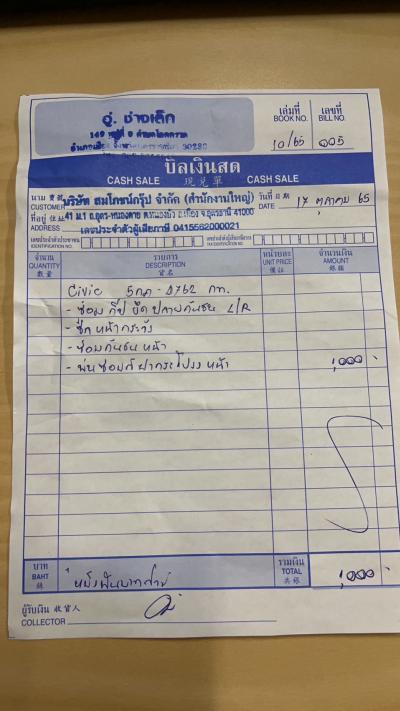 อู่. ช่างเล็ก
149 หมู่ที่ 9 ตำบลโคกกรวด
30280
เล่มที่ เลขที่
BOOK NO. BILL NO.
10/65 005
บิลเงินสด
CASH SALE 現兌單 CASH SALE
นาม 寶號 บริษัท สมโภชน์กรุ๊ป จำกัด (สำนักงานใหญ่) วันที่ 日期
CUSTOMER DATE 17 ตุลาคม 65
ที่อยู่ 住址 41 ม.1 ถ.อุดร-หนองคาย ต.หนองบัว อ.เมือง จ.อุดรธานี 41000
ADDRESS เลขประจำตัวผู้เสียภาษี 0415562000021
เลขประจำตัวประชาชน
IDENTIFICATION NO.
จำนวน รายการ หน่วยละ จำนวนเงิน
QUANTITY DESCRIPTION UNIT PRICE AMOUNT
數量 貨名 價註 銀額
Civic 5กก-0762 กท.
- ซ่อม กิ๊ป ยึด ปลายกันชน L/R
- หน้ากระจัง
- ซ่อมกันชน หน้า
- พ่นซ่อมสีฝากระโปรง หน้า 1,000
บาท รวมเงิน
BAHT หนึ่งพันบาทถ้วน TOTAL 1,000
銖 共銀
ผู้รับเงิน 收貨人
COLLECTOR